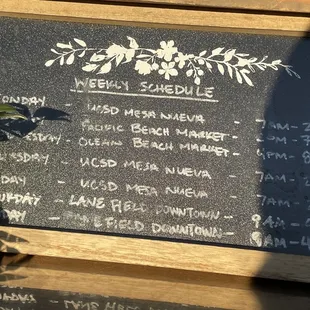 WEEKLY SCHEDULE
ONDAY - UCSD MESA NUEVA 7AM-
PACIFIC BEACH MARKET -
OCEAN BEACH MARKET - 4PM-8
RSDAY - UCSD MESA NUEVA 7AM
DAY - UCSD MESA NUEVA 7AM
URDAY - LANE FIELD DOWNTOWN - 9AM-
DAY - LANE FIELD DOWNTOWN - 8AM-4